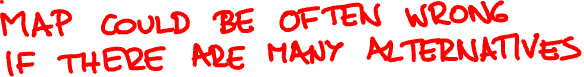 MAP COULD BE OFTEN WRONG
IF THERE ARE MANY ALTERNATIVES